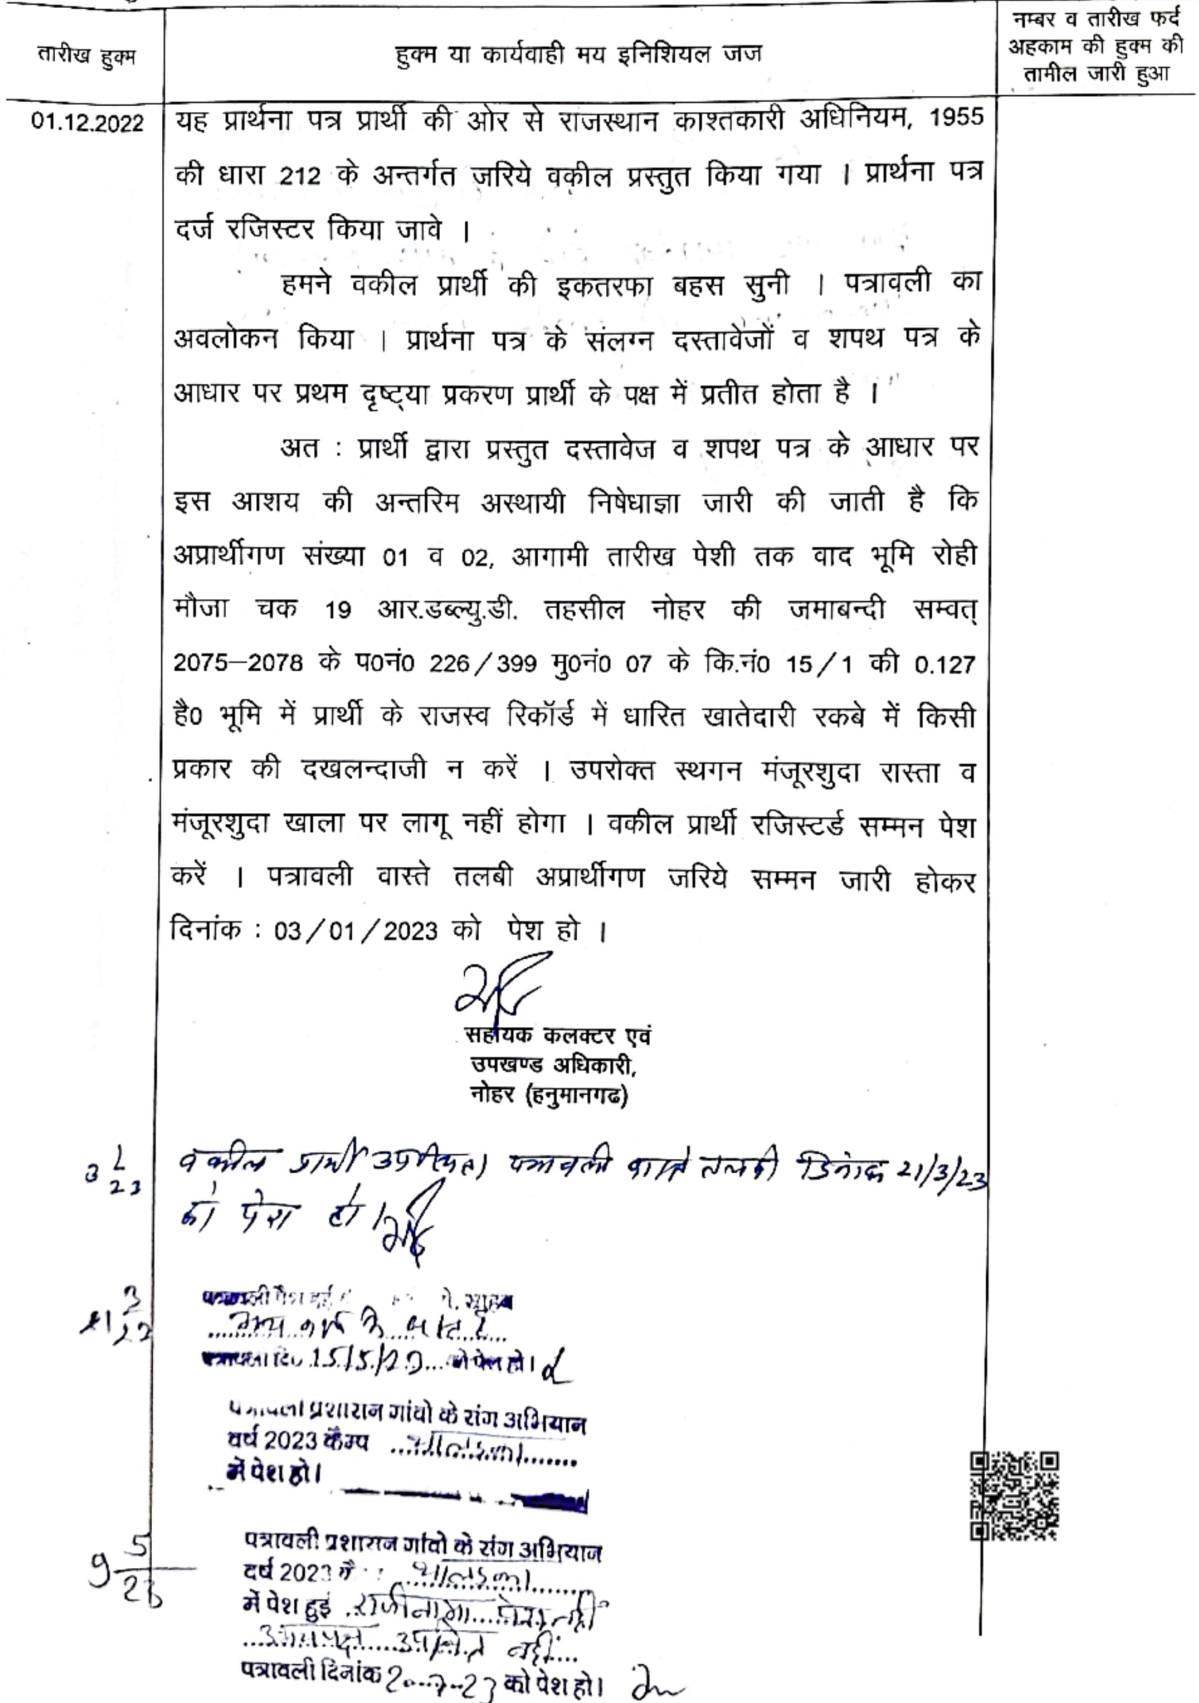 तारीख हुक्म
हुक्म या कार्यवाही मय इनिशियल जज
नम्बर व तारीख फर्द
अहकाम की हुक्म की
तामील जारी हुआ
01.12.2022
यह प्रार्थना पत्र प्रार्थी की ओर से राजस्थान काश्तकारी अधिनियम, 1955
की धारा 212 के अन्तर्गत जरिये वकील प्रस्तुत किया गया । प्रार्थना पत्र
दर्ज रजिस्टर किया जावे ।
हमने वकील प्रार्थी की इकतरफा बहस सुनी । पत्रावली का
अवलोकन किया । प्रार्थना पत्र के संलग्न दस्तावेजों व शपथ पत्र के
आधार पर प्रथम दृष्ट्या प्रकरण प्रार्थी के पक्ष में प्रतीत होता है ।
अत : प्रार्थी द्वारा प्रस्तुत दस्तावेज व शपथ पत्र के आधार पर
इस आशय की अन्तरिम अस्थायी निषेधाज्ञा जारी की जाती है कि
अप्रार्थीगण संख्या 01 व 02, आगामी तारीख पेशी तक वाद भूमि रोही
मौजा चक 19 आर.डब्ल्यु.डी. तहसील नोहर की जमाबन्दी सम्वत्
2075-2078 के प0नं0 226/399 मु0नं0 07 के कि.नं0 15/1 की 0.127
है0 भूमि में प्रार्थी के राजस्व रिकॉर्ड में धारित खातेदारी रकबे में किसी
प्रकार की दखलन्दाजी न करें । उपरोक्त स्थगन मंजूरशुदा रास्ता व
मंजूरशुदा खाला पर लागू नहीं होगा । वकील प्रार्थी रजिस्टर्ड सम्मन पेश
करें । पत्रावली वास्ते तलबी अप्रार्थीगण जरिये सम्मन जारी होकर
दिनांक : 03/01/2023 को पेश हो ।
सहायक कलक्टर एवं
उपखण्ड अधिकारी,
नोहर (हनुमानगढ)
3 1/23
वकील प्रार्थी उपस्थित। पत्रावली वास्ते तलबी दिनांक 21/3/23
को पेश हो।
21 3/23
पत्रावली पेश हुई
पत्रावली दि0 15/5/23 को पेश हो।
पत्रावली प्रशासन गांवो के संग अभियान
वर्ष 2023 कैम्प
में पेश हो।
9 5/23
पत्रावली प्रशासन गांवो के संग अभियान
वर्ष 2023
में पेश हुई राजीनामा पेश नहीं
उभयपक्ष उपस्थित नहीं
पत्रावली दिनांक 20-7-23 को पेश हो।